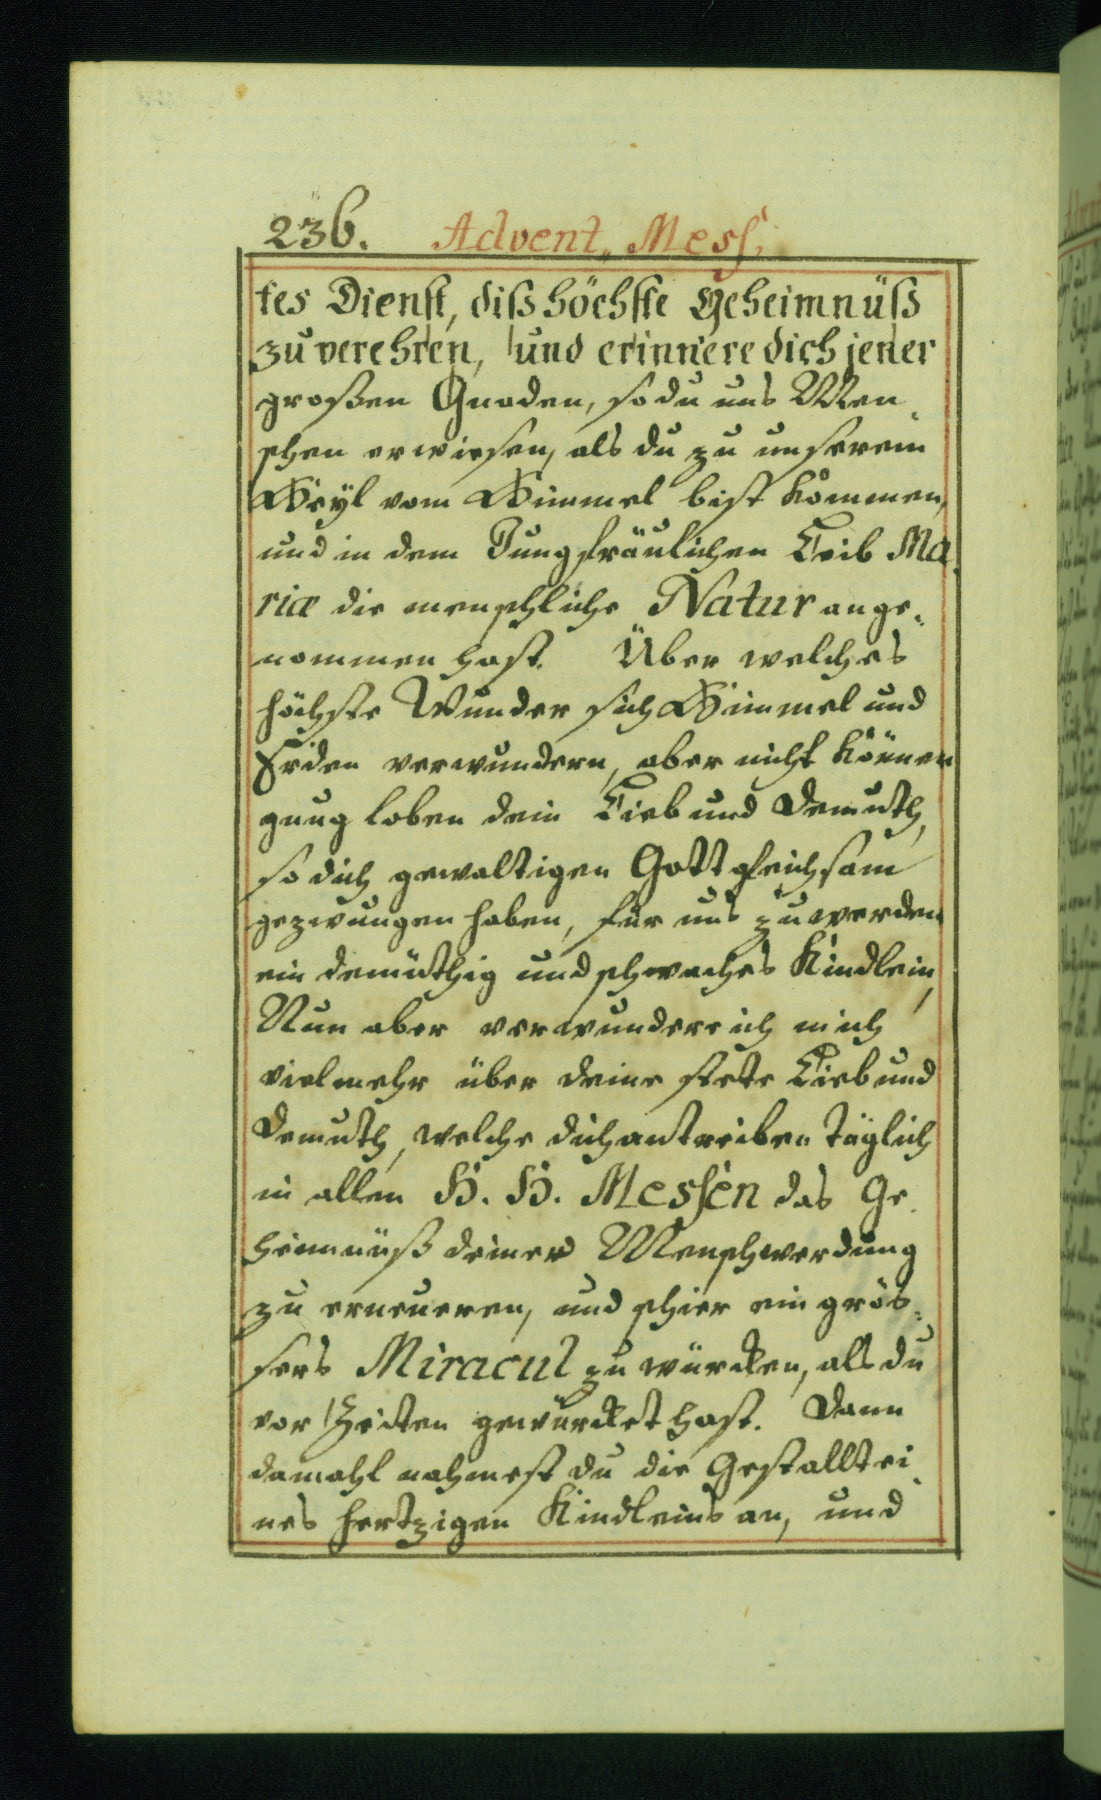 236. Advent„ Mess,
tes Dienst, diß höchste Geheimnüß
zu verehren, und erinnere dich jener
großen Gnaden, so du uns Men„
schen erwiesen, als du zu unserem
Heyl vom Himmel bist kommen,
und in dem Jungfräulichen Leib Ma„
riæ die menschliche Natur ange„
nommen hast. Über welches
höchste Wunder sich Himmel und
Erden verwundern, aber nicht können
gnug loben dein Lieb und Demuth,
so dich gewaltigen Gott gleichsam
gezwungen haben, für uns zu werden
ein demüthig und schwaches Kindlein,
Nun aber verwundere ich mich
vielmehr über deine stete Lieb und
Demuth, welche dich antreiben täglich
in allen H. H. Messen das Ge„
heimnüß deiner Menschwerdung
zu erneueren, und schier ein grös„
sers Miracul zu würcken, als du
vor Zeiten gewürcket hast. Dann
damahl nahmest du die Gestallt ei„
nes hertzigen Kindleins an, und